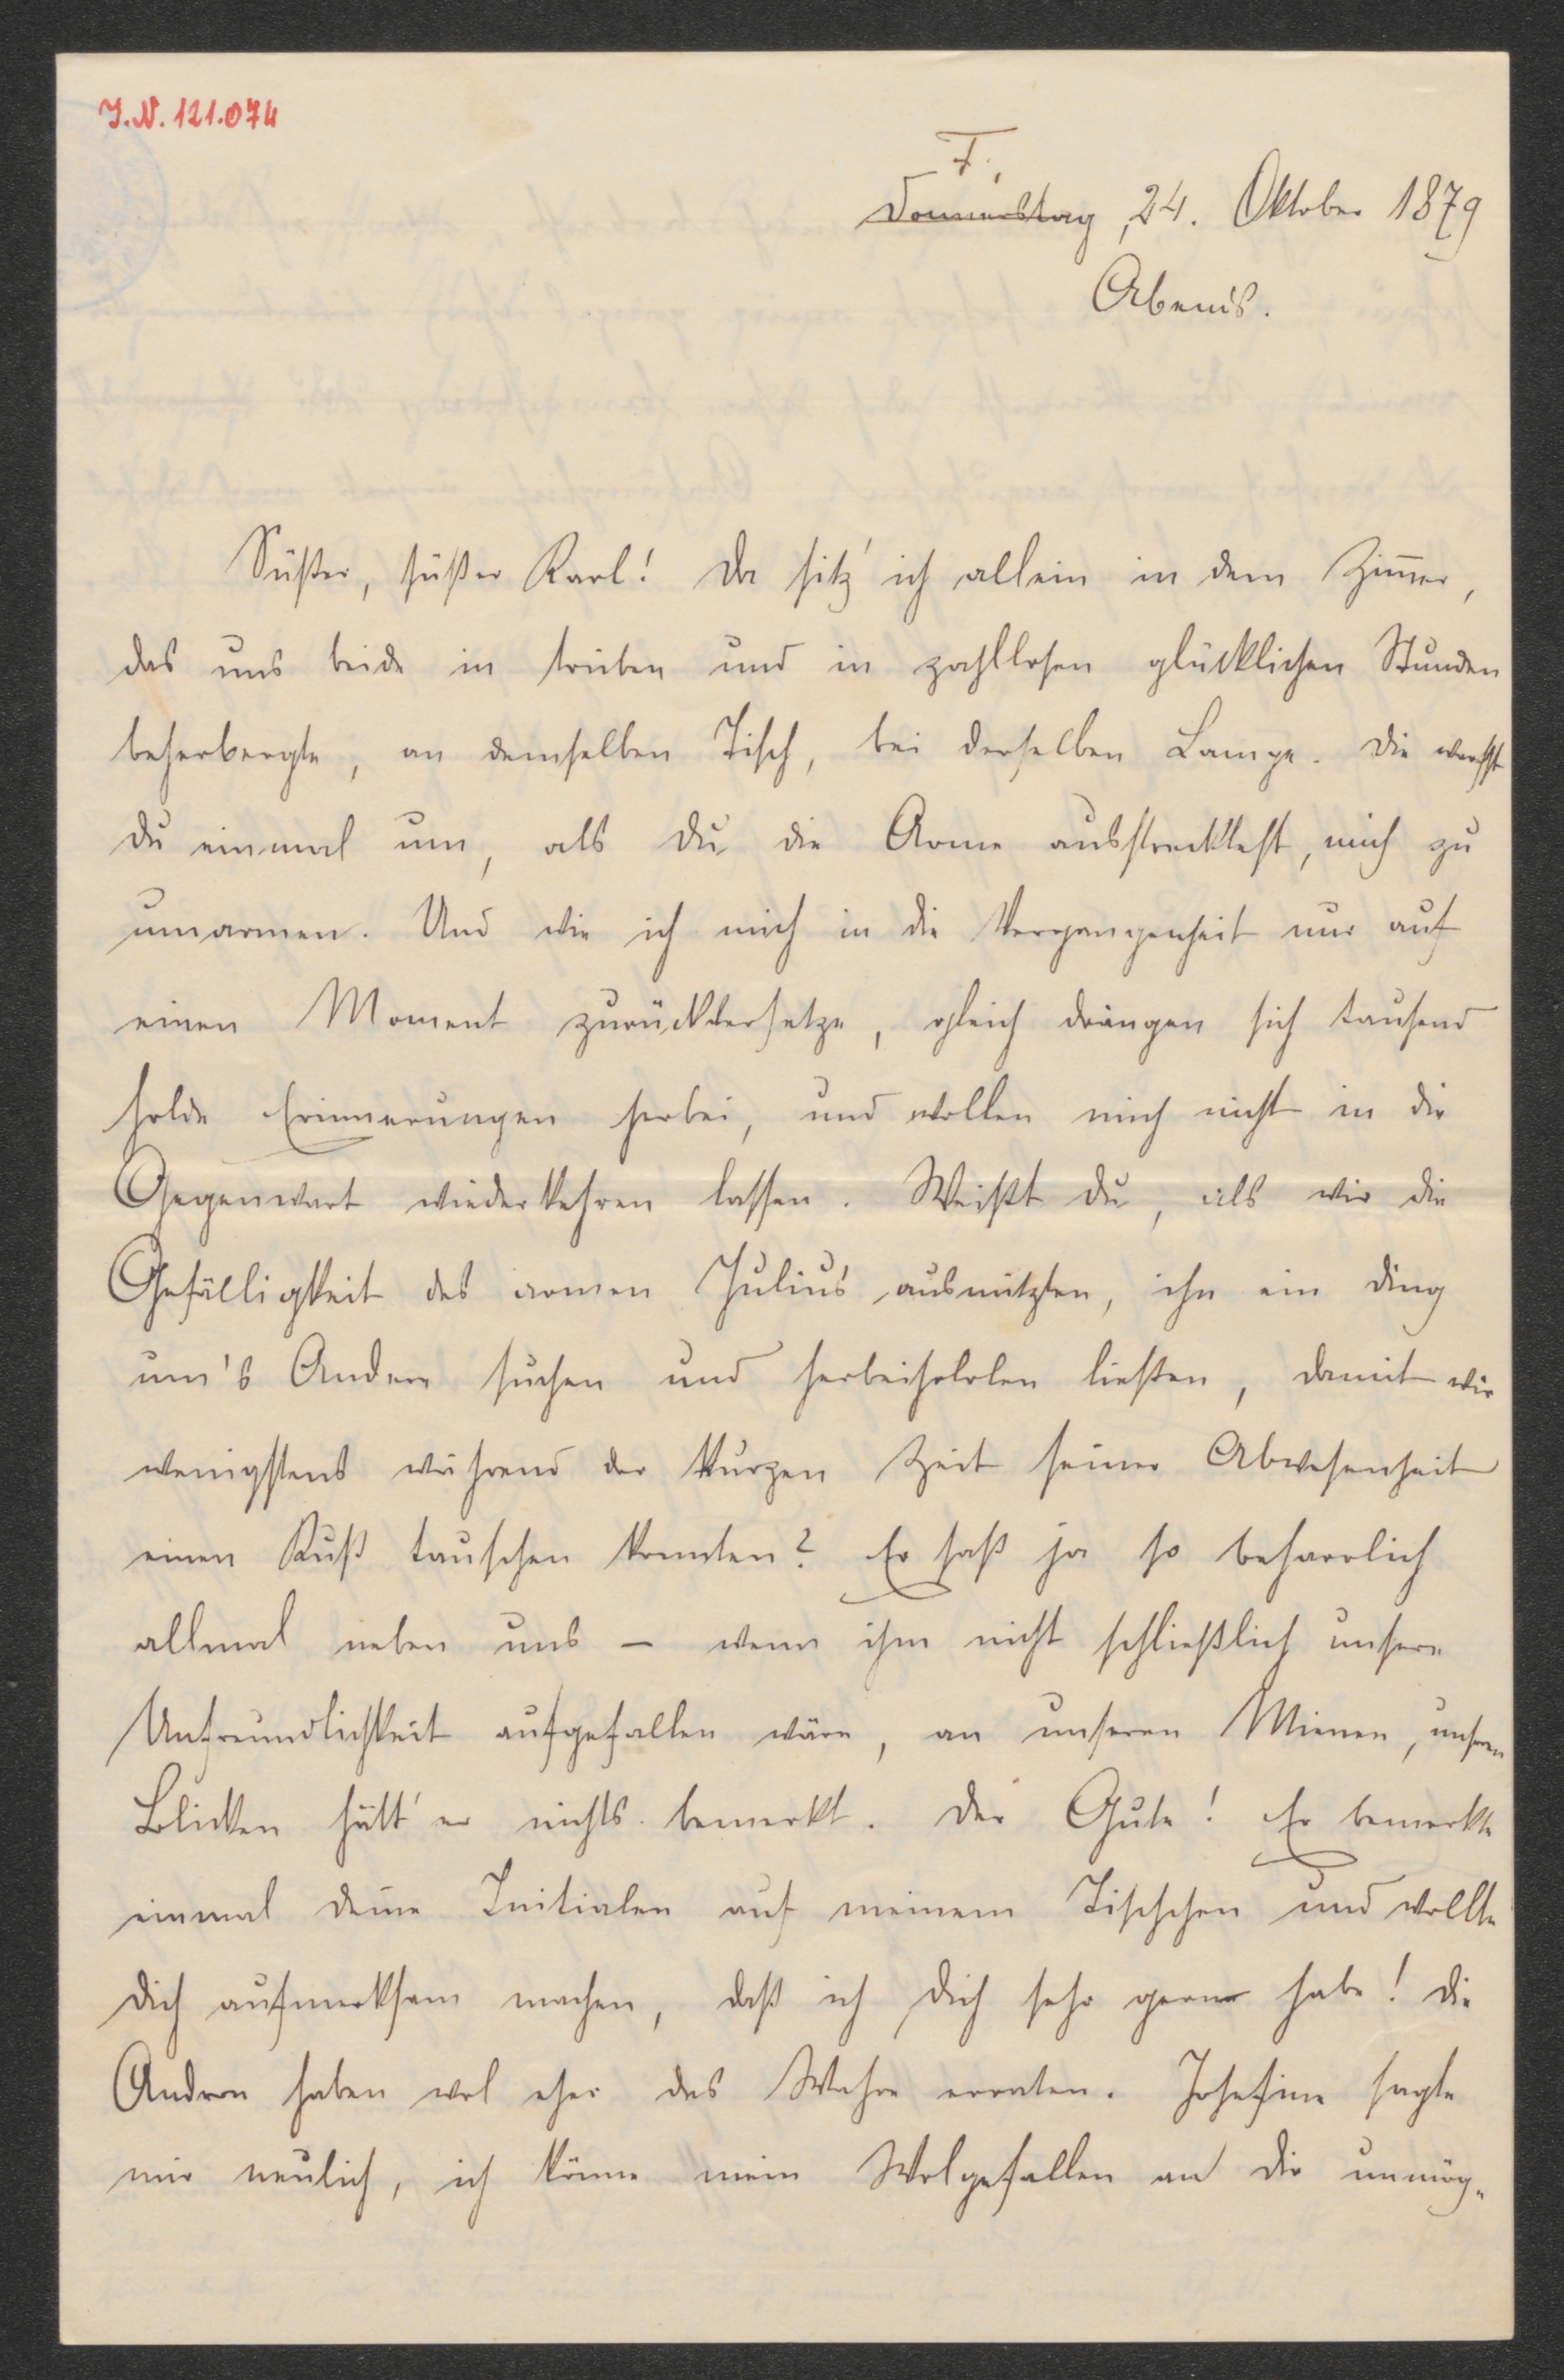 J.N. 121.074
F.
Donnerstag, 24. Oktober 1879
Abends.
Süßer, süßer Karl! Da sitz' ich allein in dem Zim̅er,
das uns beide in trüben und in zahllosen glücklichen Stunden
beherbergte, an demselben Tisch, bei derselben Lampe. Die warfst
du einmal um, als Du die Arme ausstrecktest, mich zu
umarmen. Und wie ich mich in die Vergangenheit nur auf
einen Moment zurückversetze, gleich drängen sich tausend
holde Erinnerungen herbei, und wollen mich nicht in die
Gegenwart wiederkehren lassen. Weißt Du, als wir die
Gefälligkeit des armen Julius ausnützten, ihn ein Ding
um's Andere suchen und herbeiholen ließen, damit wir
wenigstens während der kurzen Zeit seiner Abwesenheit
einen Kuß tauschen konnten? Er saß ja so beharrlich
allmal neben uns – wenn ihm nicht schließlich unsere
Unfreundlichkeit aufgefallen wäre, an unseren Mienen, unseren
Blicken hätt' er nichts bemerkt. Der Gute! Er bemerkte
einmal deine Initialen auf meinem Tischchen und wollte
Dich aufmerksam machen, daß ich Dich sehr gerne habe! Die
Andren haben wol eher das Wahre erraten. Josefine sagte
mir neulich, ich könne mein Wolgefallen an Dir unmög-